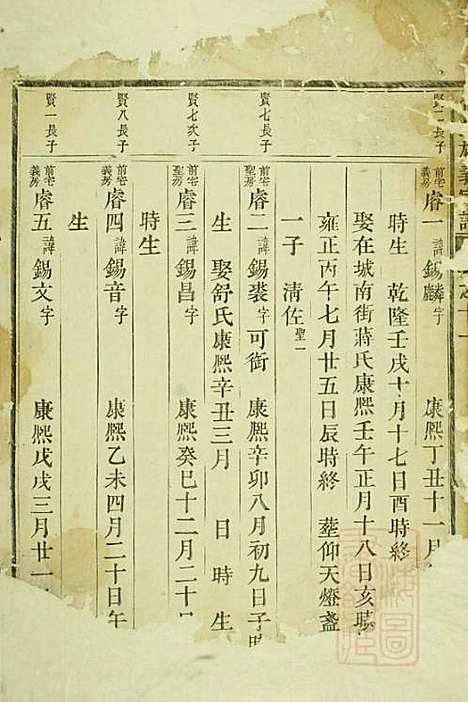 賢二長子
前宅義房 睿一 諱 錫麟 字 康熙丁丑十一月
時生 乾隆壬戌十月十七日酉時終
娶在城南街蔣氏康熙壬午正月十八日亥時
雍正丙午七月廿五日辰時終 塟仰天燈盞
一子 清佐 聖一
賢七長子
前宅聖房 睿二 諱 錫裘 字 可衔 康熙辛卯八月初九日子時
生 娶舒氏康熙辛丑三月 日時生
賢七次子
前宅聖房 睿三 諱 錫昌 字 康熙癸巳十二月二十
時生
賢八長子
前宅義房 睿四 諱 錫音 字 康熙乙未四月二十日午
生
賢一長子
前宅義房 睿五 諱 錫文 字 康熙戊戌三月廿一